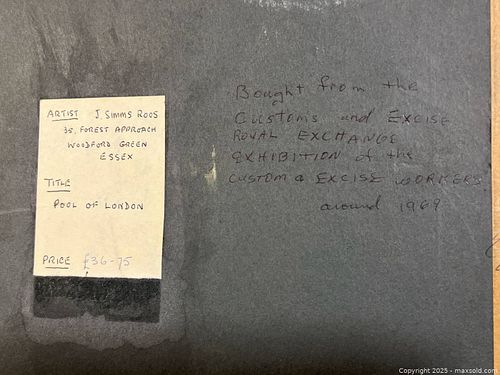 ARTIST J. SIMMS ROOS
35, FOREST APPROACH
WOODFORD GREEN
ESSEX
TITLE
POOL OF LONDON
PRICE £36-75
Bought from the
Customs and EXCISE
ROYAL EXCHANGE
EXHIBITION of the
CUSTOM & EXCISE WORKERS
around 1969
Copyright 2025 - maxsold.com